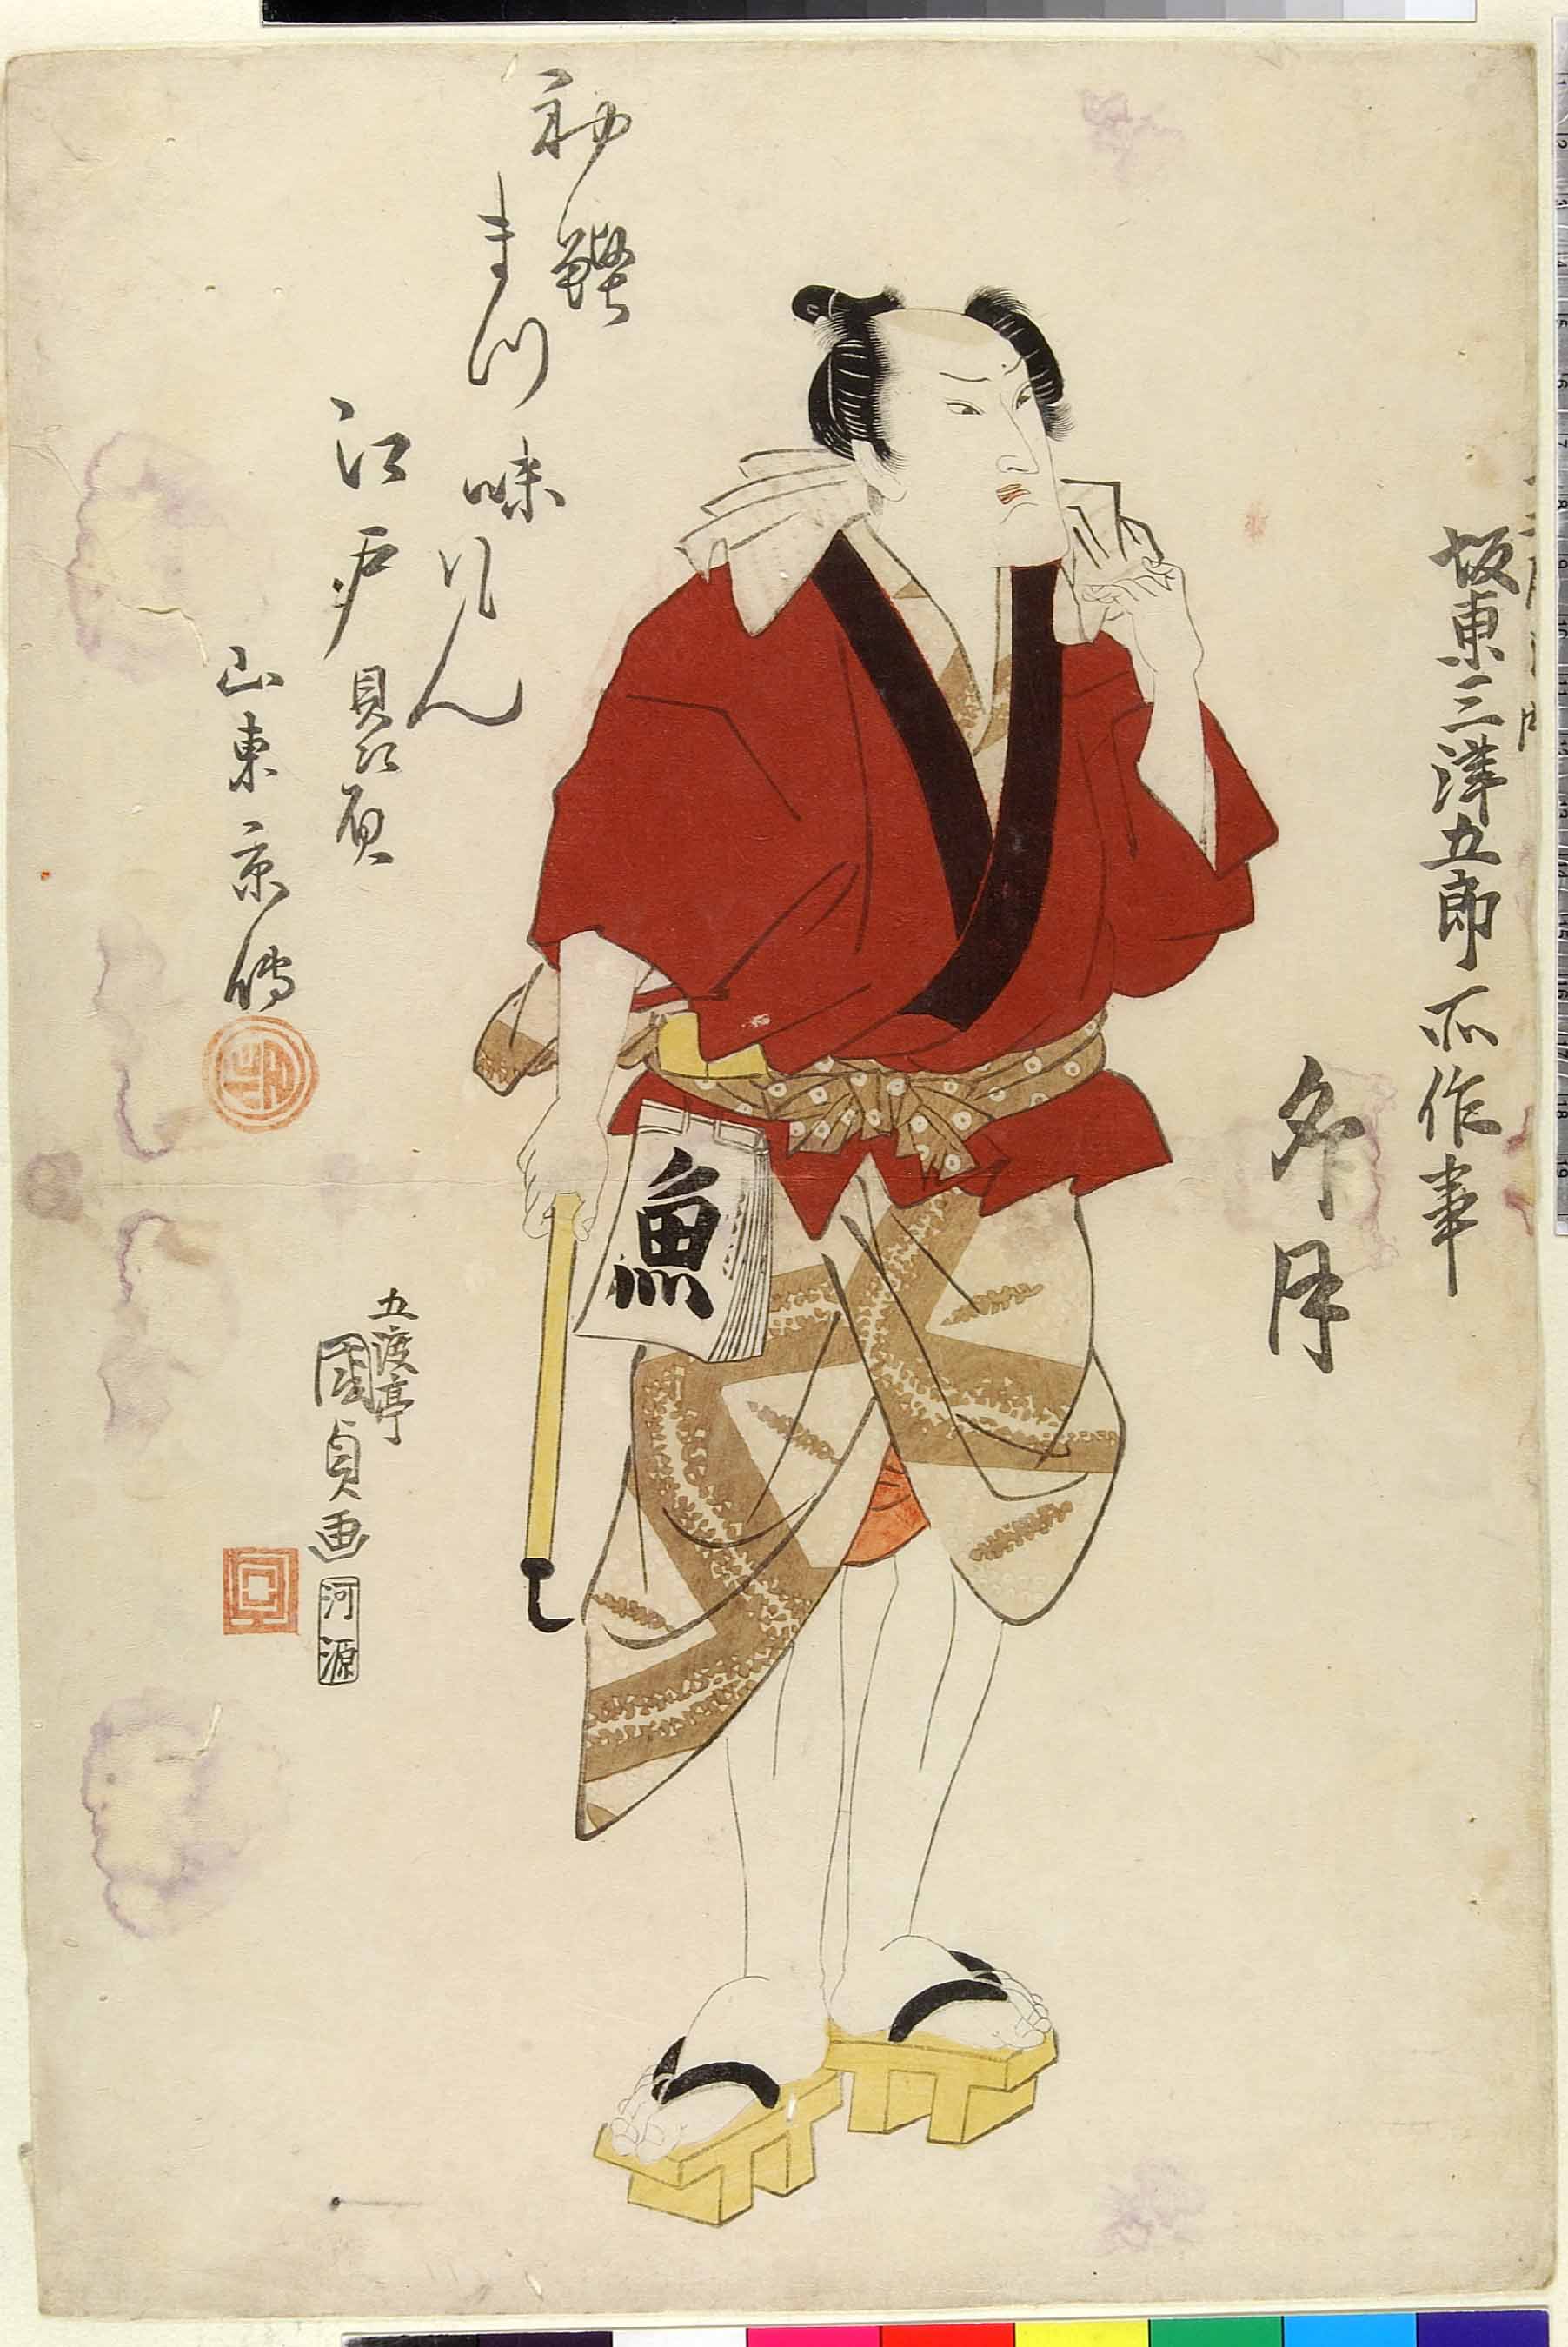 坂東三津五郎所作事
夕月
初鰹
まづ味りん
江戸贔屓
山東京傳
魚
五渡亭
國貞画
河源